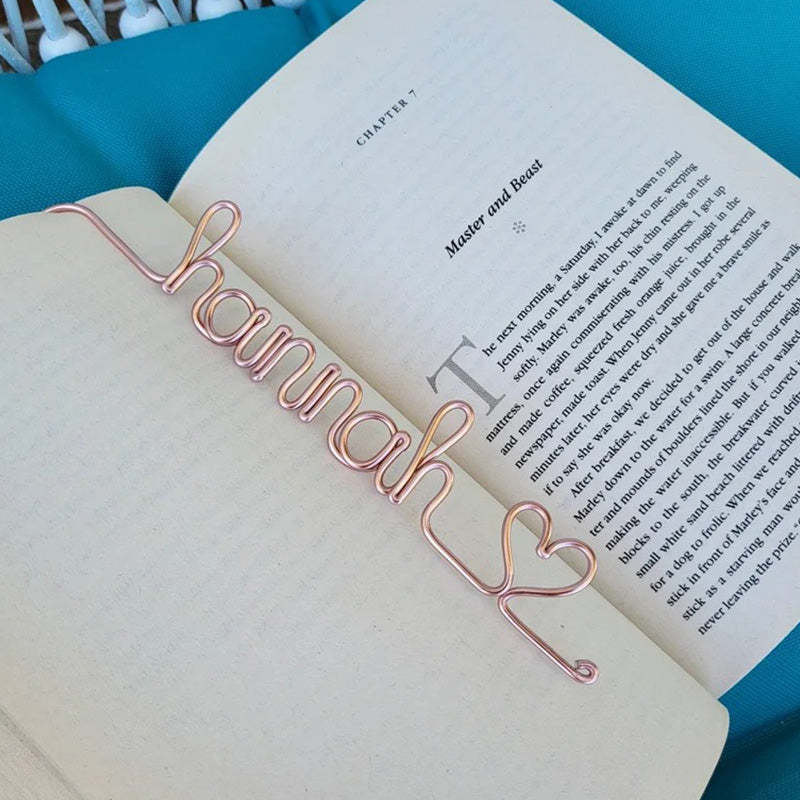 hannah
CHAPTER 7
Master and Beast
The next morning, a Saturday, I awoke at dawn to find
Jenny lying on her side with her back to me, weeping
softly. Marley was awake, too, his chin resting on the
mattress, once again commiserating with his mistress. I got up
and made coffee, squeezed fresh orange juice, brought in the
newspaper, made toast. When Jenny came out in her robe several
minutes later, her eyes were dry and she gave me a brave smile as
if to say she was okay now.
After breakfast, we decided to get out of the house and walk
Marley down to the water for a swim. A large concrete
ter and mounds of boulders lined the shore in our
making the water inaccessible. But if you walked
blocks to the south, the breakwater curved
small white sand beach littered with
for a dog to frolic. When we reached
stick in front of Marley's face and
stick as a starving man
never leaving the prize.